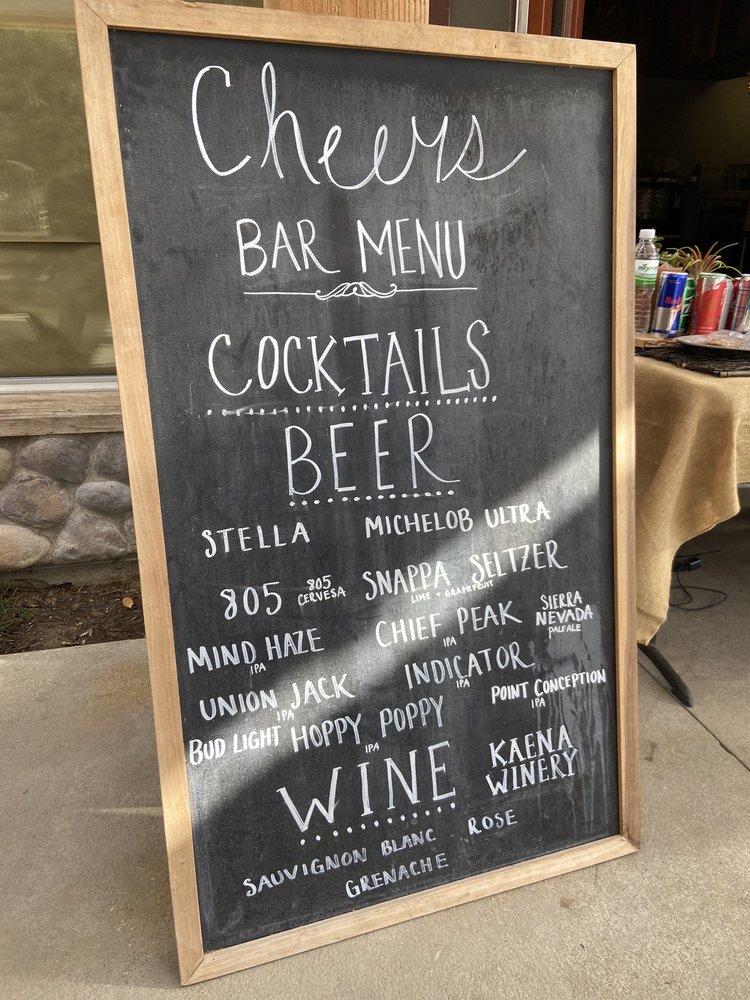 Cheers
BAR MENU
COCKTAILS
BEER
STELLA MICHELOB ULTRA
805 805 CERVESA SNAPPA SELTZER
LIME + GRAPEFRUIT
MIND HAZE
IPA
CHIEF PEAK
IPA
SIERRA
NEVADA
PALE ALE
UNION JACK
IPA
INDICATOR
IPA
POINT CONCEPTION
IPA
BUD LIGHT HOPPY POPPY
IPA
WINE
KAENA
WINERY
SAUVIGNON BLANC ROSE
GRENACHE
Red